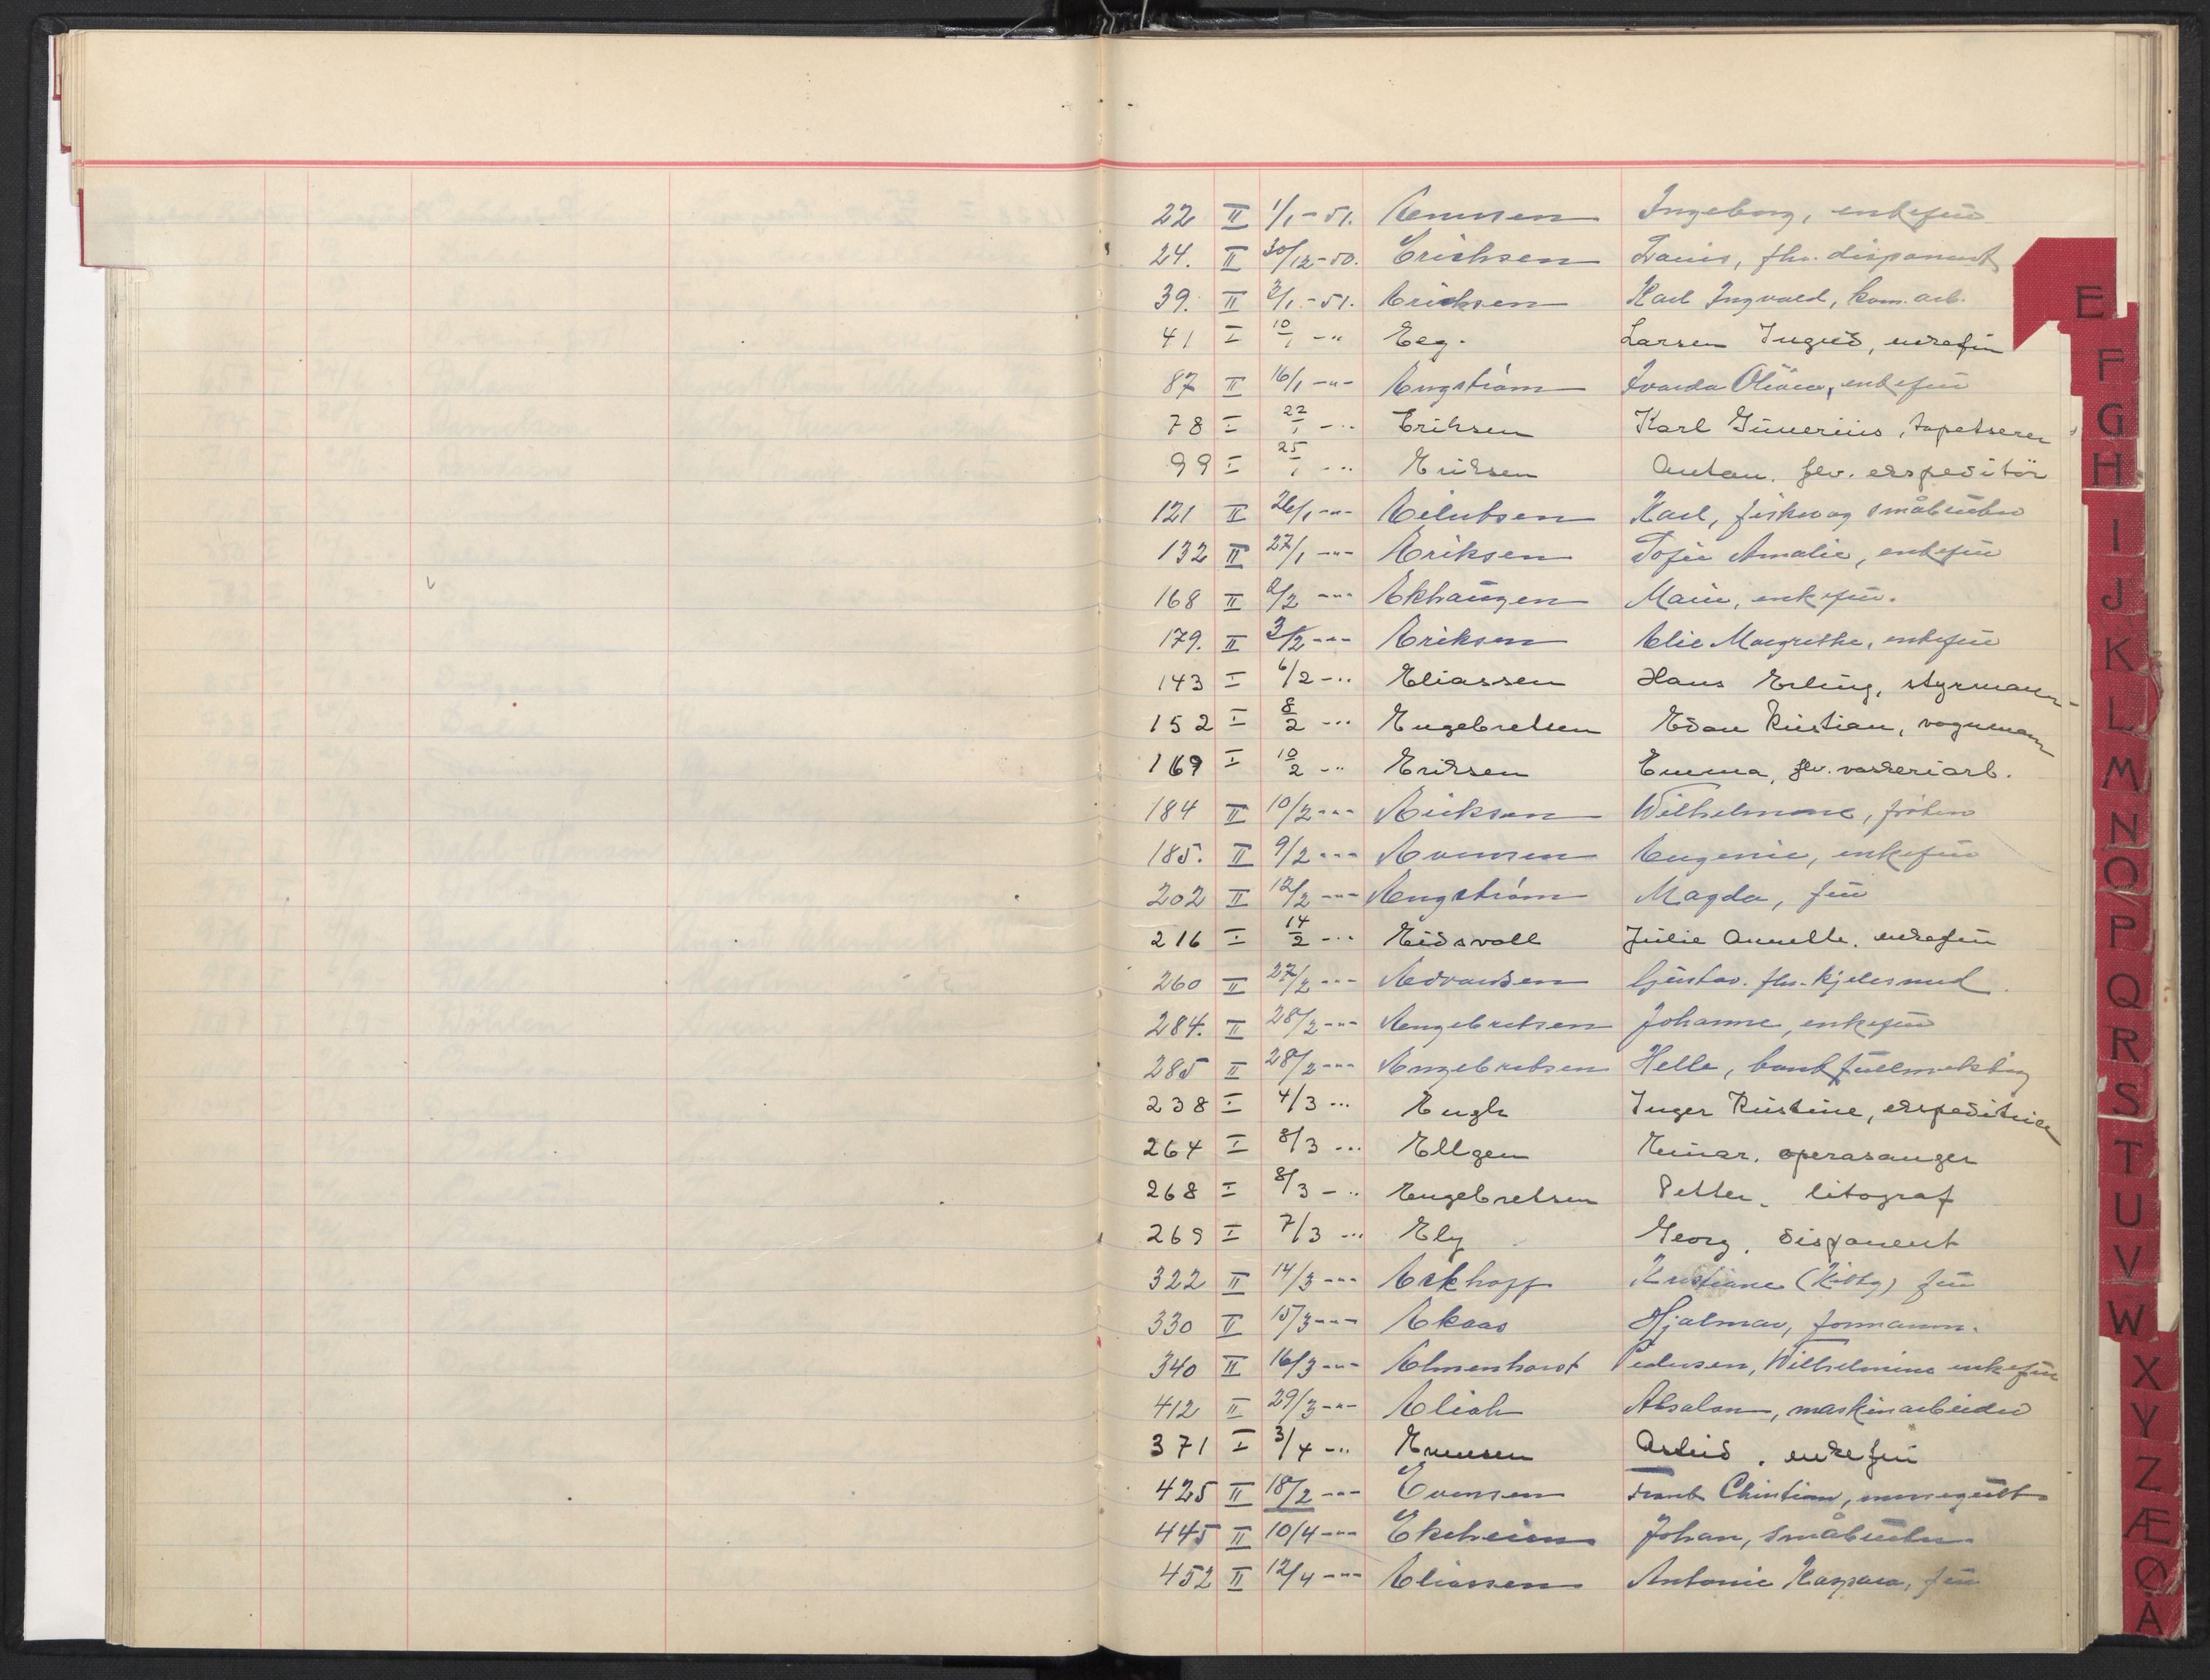 22 II 1/1-51. Ingeborg, enkefru
24. II 30/12-50. Erichsen Louis, fhv. disponent
39. II 2/1-51. Erichsen Karl Ingvald, kom. arb.
41 I 10/1 -" Eeg. Larsen Ingrid, enkefru
87 II 16/1 -"- Engström enkefru
78 I 22/1 -" Eriksen Karl Gunerius, tapetserer
99 I 25/1 -" Eriksen Anton. fhv. ekspeditör
121 II 26/1 -"- Eilertsen Karl, fisker og småbruker
132 II 27/1 -"- Eriksen Sofie Amalie, enkefru
168 II 2/2 -"- Ekhaugen Marie, enkefru.
179. II 3/2 -"- Eriksen Elie Margrethe, enkefru
143 I 6/2 -" Eliassen Hans Erling, styrmann
152 I 8/2 -" Engebretsen Edon Kristian, vognmann
169 I 10/2 -" Eriksen Emma, fhv. vaskeriarb.
184 II 10/2 -"- Eriksen Wilhelmine, frøken
185. II 9/2 -"- Evensen Eugenie, enkefru
202 II 12/2 -"- Engström Magda, fru
216 I 14/2 -" Eidsvoll Julie Annette, enkefru
260 II 27/2 -"- Edvardsen Gustav. fhv. kjelesmed
284. II 28/2 -"- Engebretsen Johanne, enkefru
285 II 28/2 -"- Engebretsen Helle, bankfullmektig
238 I 4/3 -" Engh Inger Kristine, ekspeditrise
264 I 8/3 -" Ellgen Einar, operasanger
268 I 8/3 -" Engebretsen Petter, litograf
269 I 7/3 -" Ely Georg, disponent
322 II 14/3 -"- Eckhoff Kristiane (Kitty) fru
330 II 15/3 -"- Ekaas Hjalmar, formann.
340 II 16/3 -"- Elmenhorst Pedersen, Wilhelmine enkefru
412 II 29/3 -"- Eliah Absalon, maskinarbeider
371 I 3/4 -" Evensen Astrid, enkefru
425 II 18/2 -"- Evensen Frants Christian,
445 II 10/4 -"- Ekeheien Johan, småbruker
452 II 12/4 -"- Eliassen Antonie Kaspara, fru
E
F
G
H
I
J
K
L
M
N
O
P
Q
R
S
T
U
V
W
X
Y
Z
Æ
Ø
Å